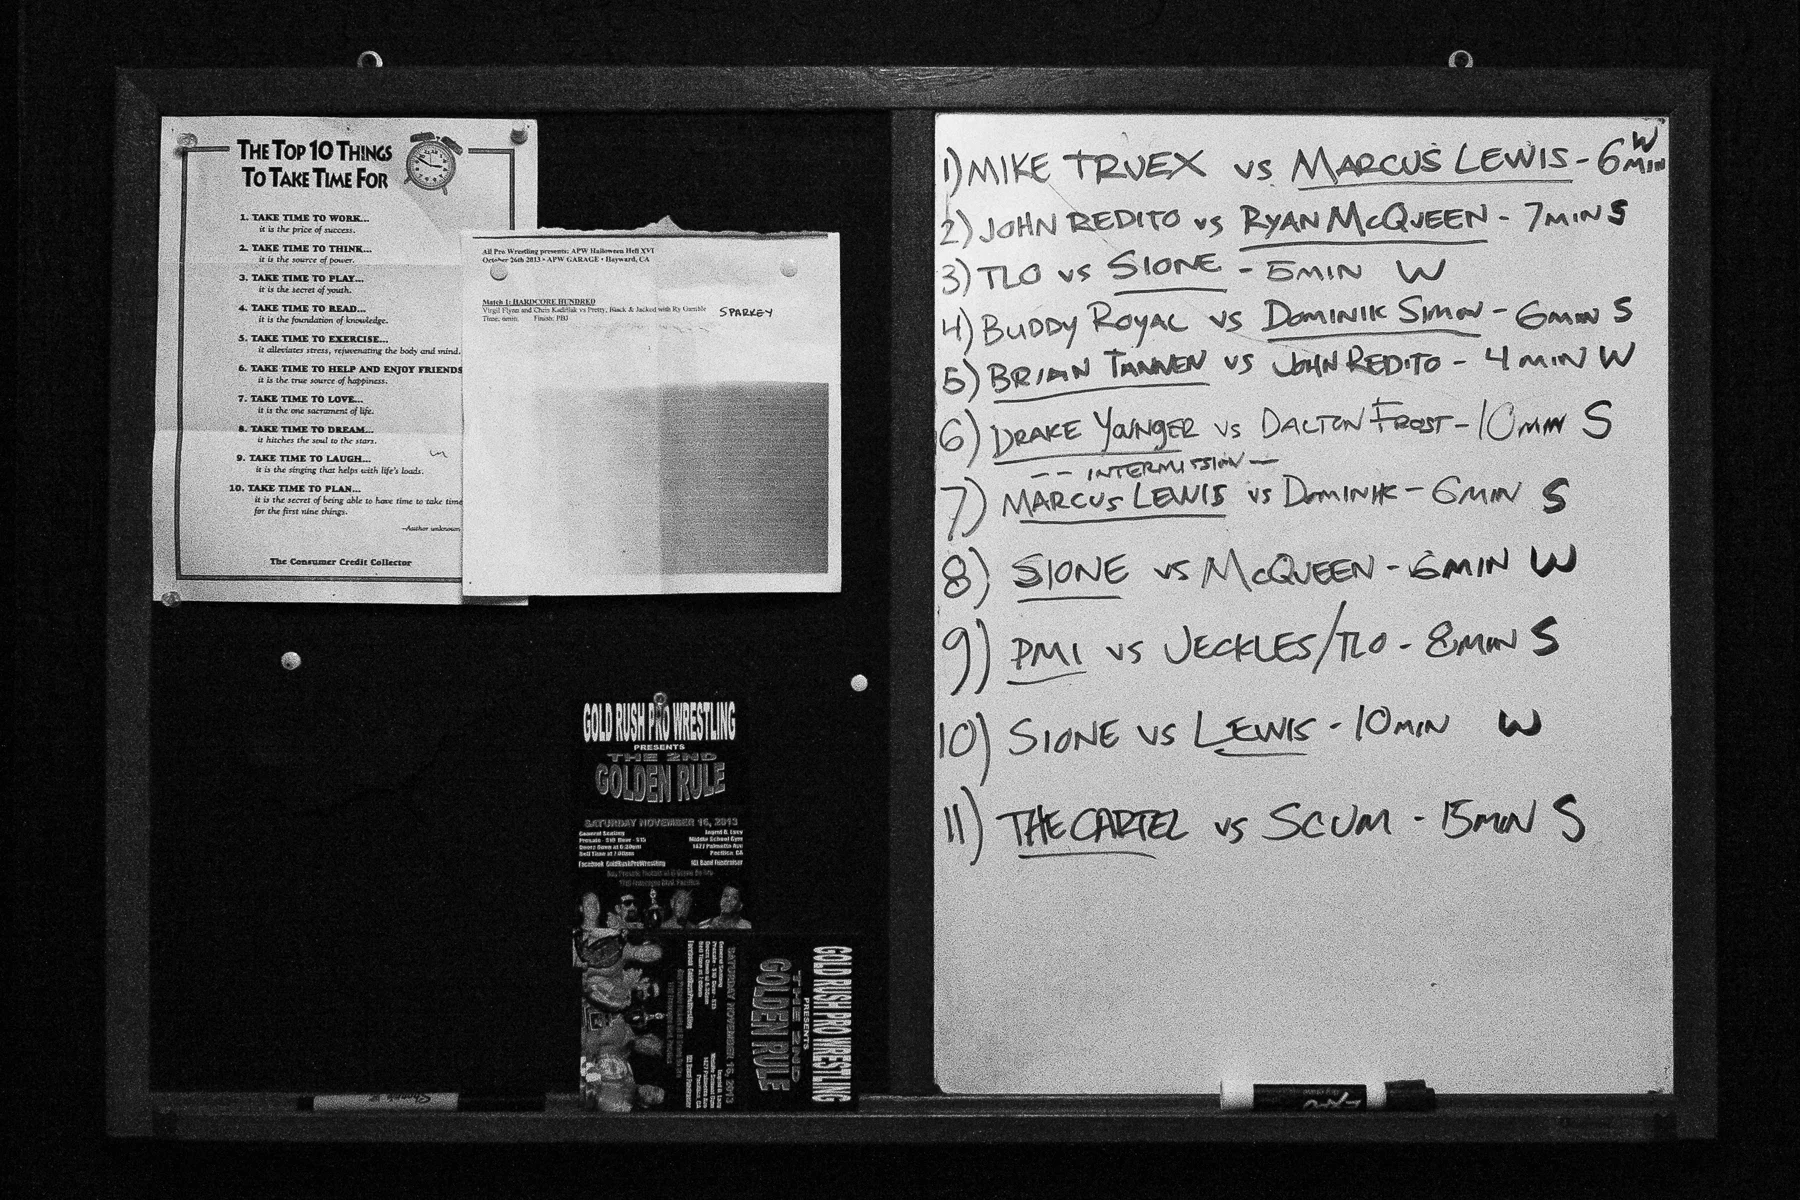 THE TOP 10 THINGS
TO TAKE TIME FOR
1. TAKE TIME TO WORK...
it is the price of success.
2. TAKE TIME TO THINK...
it is the source of power.
3. TAKE TIME TO PLAY...
it is the secret of youth.
4. TAKE TIME TO READ...
it is the foundation of knowledge.
5. TAKE TIME TO EXERCISE...
it alleviates stress, rejuvenating the body and mind.
6. TAKE TIME TO HELP AND ENJOY FRIENDS
it is the true source of happiness.
7. TAKE TIME TO LOVE...
it is the one sacrament of life.
8. TAKE TIME TO DREAM...
it hitches the soul to the stars.
9. TAKE TIME TO LAUGH...
it is the singing that helps with life's loads.
10. TAKE TIME TO PLAN...
it is the secret of being able to have time to take time
for the first nine things.
–Author unknown
The Consumer Credit Collector
All Pro Wrestling presents: APW Halloween Hell XVI
October 26th 2013 • APW GARAGE • Hayward, CA
Match 1: HARDCORE HUNDRED
Virgil Flynn and Chris Kadillak vs Pretty, Black & Jacked with Ry Gamble
SPARKEY
Time: 6min Finish: PBJ
GOLD RUSH PRO WRESTLING
PRESENTS
THE 2ND
GOLDEN RULE
SATURDAY NOVEMBER 16, 2013
General Seating
Presale - $10 Door - $15
Doors Open at 6:30pm
Bell Time at 7:00pm
Facebook GoldRushProWrestling
Ingrid B. Lacy
Middle School Gym
1427 Palmetto Ave
Pacifica, CA
IBL Band Fundraiser
GOLD RUSH PRO WRESTLING
PRESENTS
THE 2ND
GOLDEN RULE
SATURDAY NOVEMBER 16, 2013
1) MIKE TRUEX vs MARCUS LEWIS - 6 MIN W
2) JOHN REDITO vs RYAN MCQUEEN - 7MIN S
3) TLO vs SIONE - 5MIN W
4) BUDDY ROYAL vs DOMINIK SIMON - 6MIN S
5) BRIAN TANNEN vs JOHN REDITO - 4MIN W
6) DRAKE YOUNGER vs DALTON FROST - 10MIN S
-- INTERMISSION --
7) MARCUS LEWIS vs DOMINIK - 6MIN S
8) SIONE vs MCQUEEN - 6MIN W
9) PMI vs JECKLES/TLO - 8MIN S
10) SIONE VS LEWIS - 10MIN W
11) THE CARTEL vs SCUM - 15MIN S